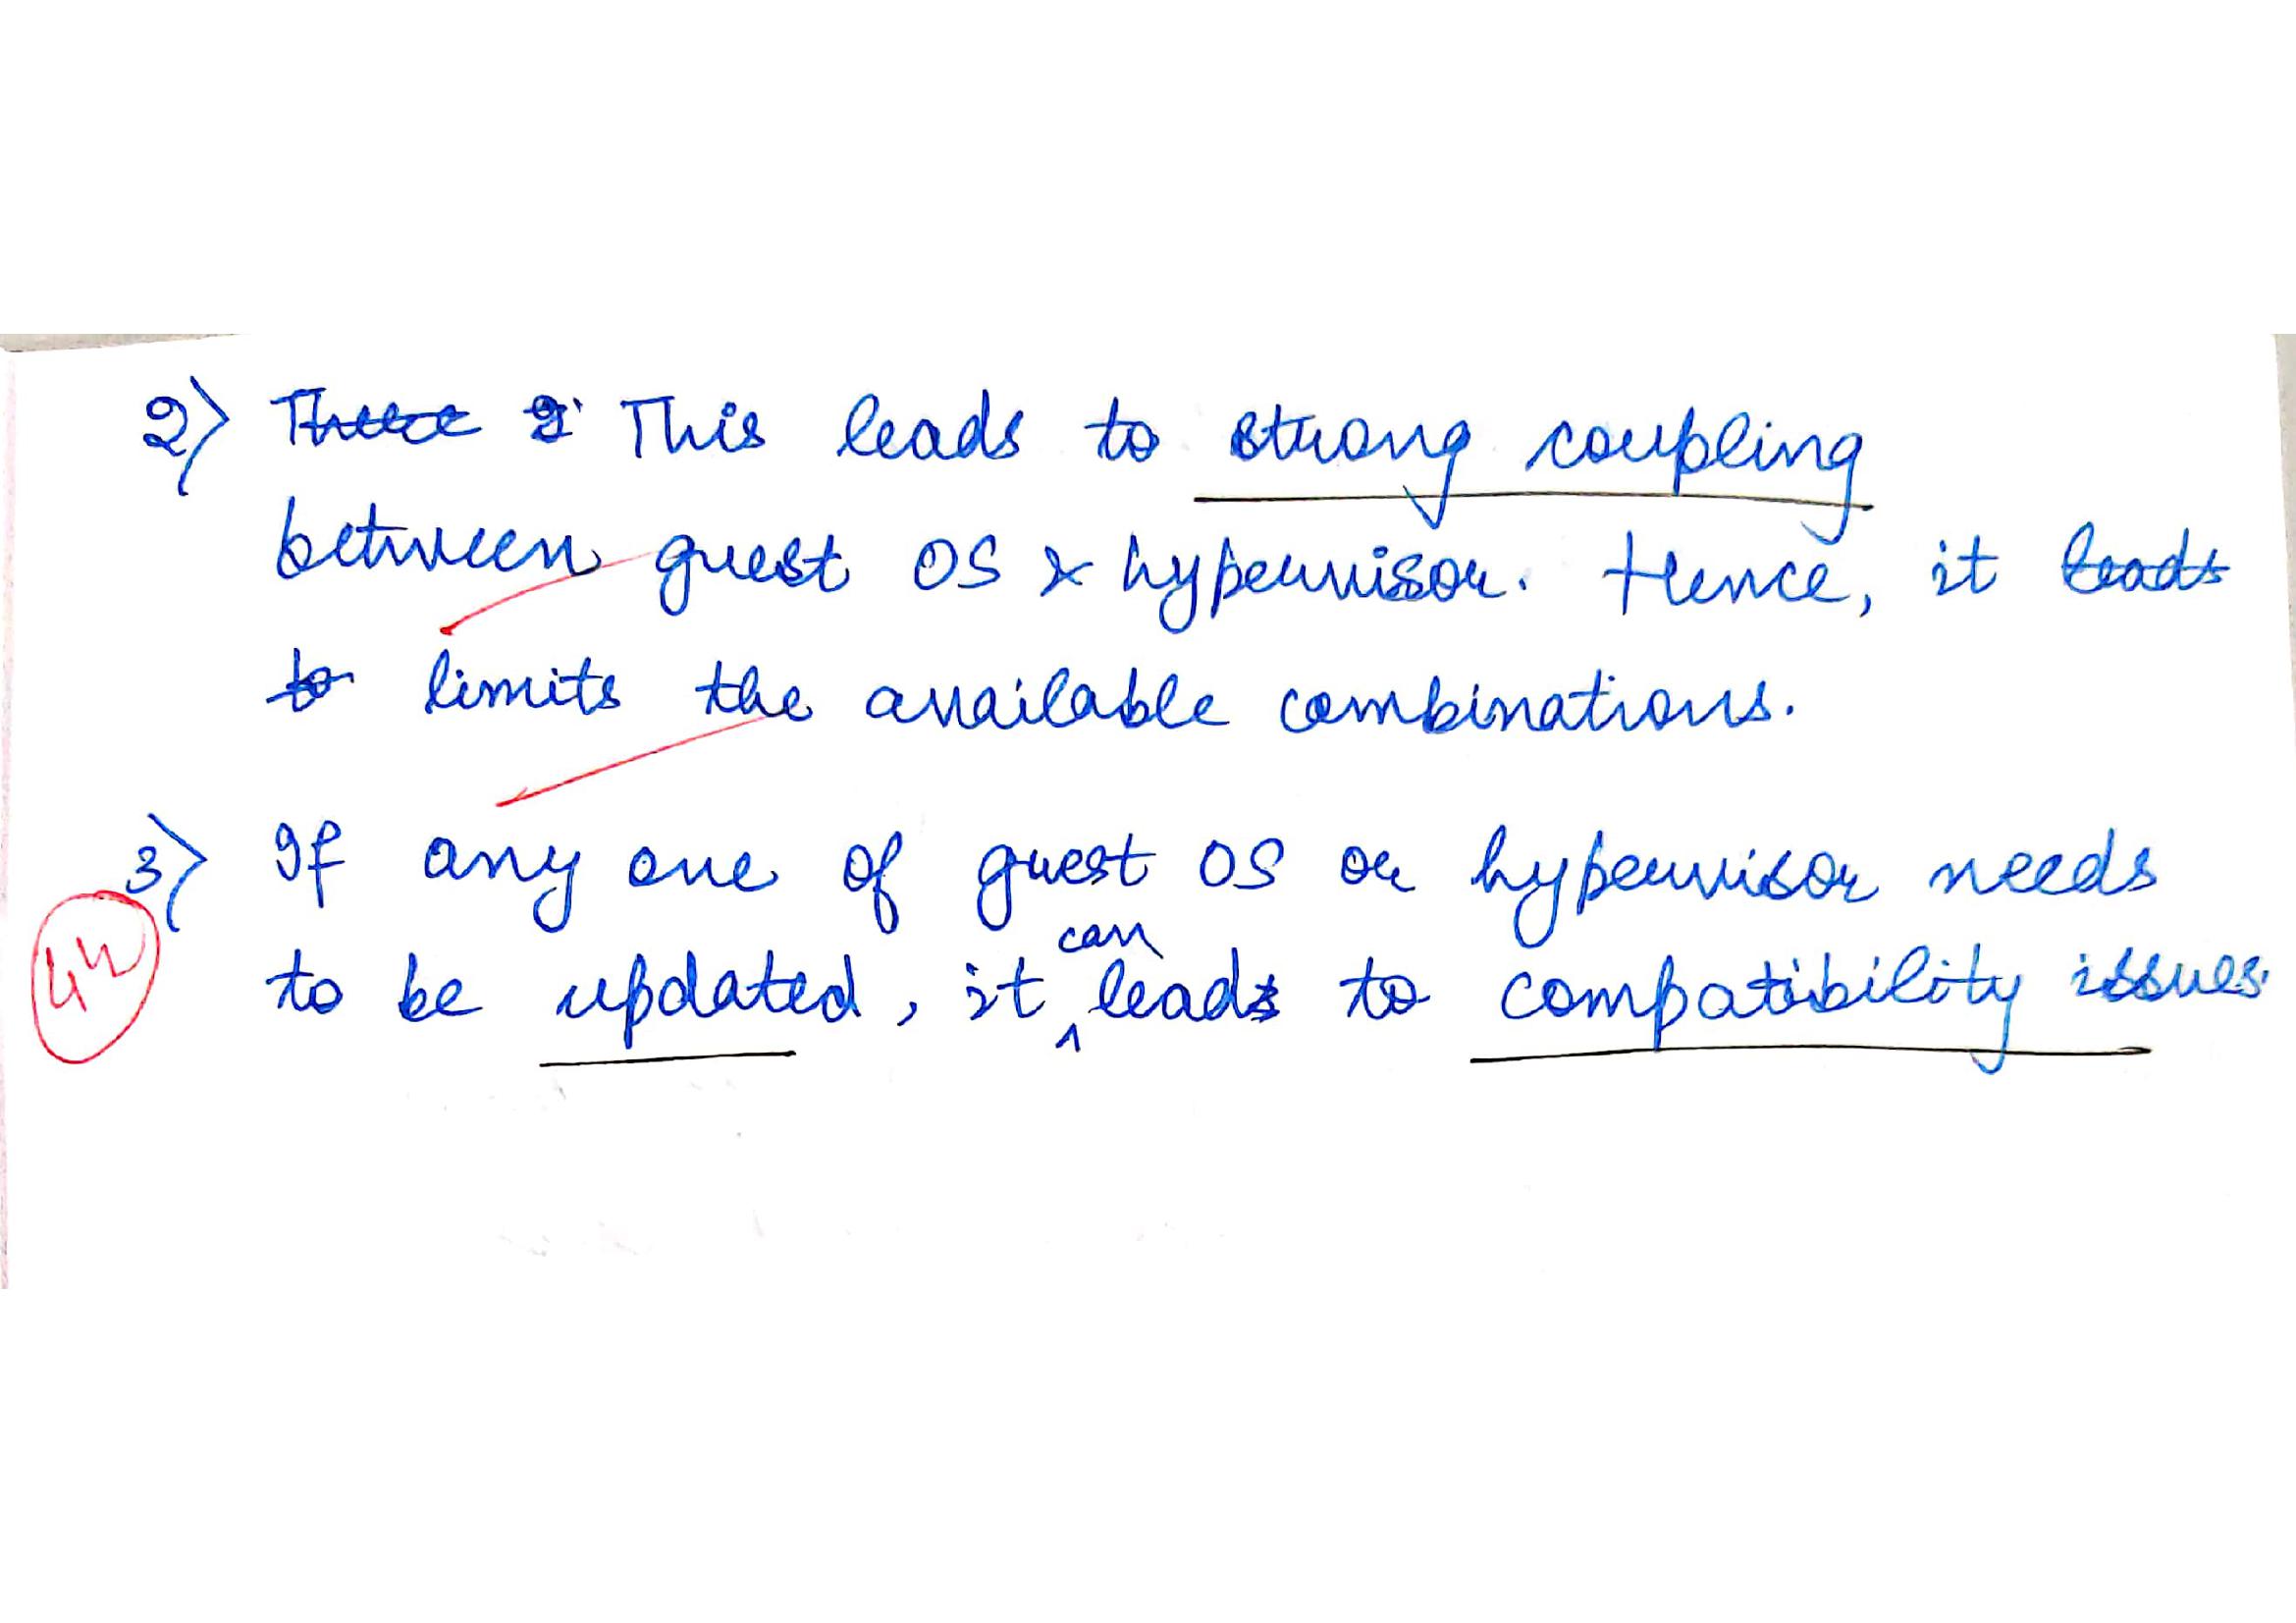 2) This leads to strong coupling
between guest OS & hypervisor. Hence, it leads
to limits the available combinations.
3) If any one of guest OS or hypervisor needs
can
to be updated, it leads to compatibility issues.